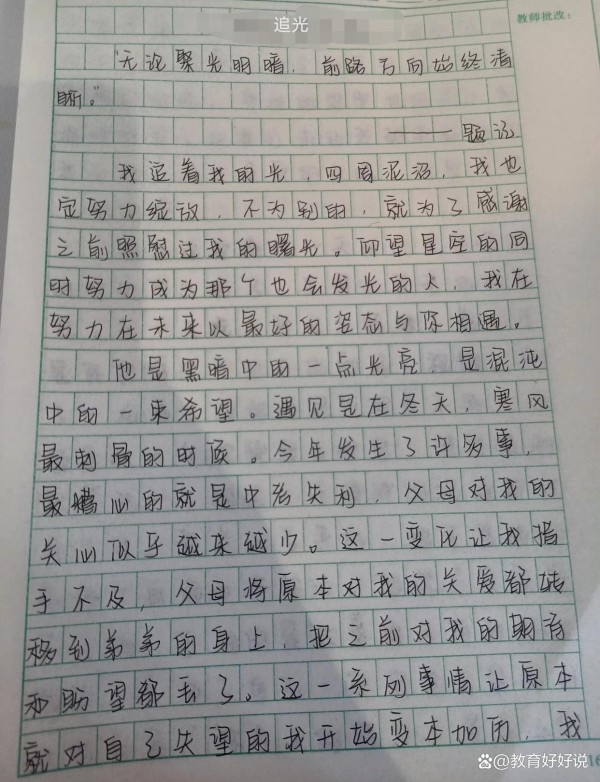 追光
教师批改：
“无论聚光明暗，前路方向始终清
晰。”
——题记
我追着我的光，四周泥沼，我也
定努力绽放，不为别的，就为了感谢
之前照慰过我的曙光。仰望星空的同
时努力成为那个也会发光的人，我在
努力在未来以最好的姿态与你相遇。
他是黑暗中的一点光亮，是混沌
中的一束希望。遇见是在冬天，寒风
最刺骨的时候。今年发生了许多事，
最糟心的就是中考失利，父母对我的
关心似乎越来越少。这一变化让我措
手不及，父母将原本对我的关爱都转
移到弟弟的身上，把之前对我的期待
和盼望都丢了。这一系列事情让原本
就对自己失望的我开始变本加厉，我
16
@教育好好说